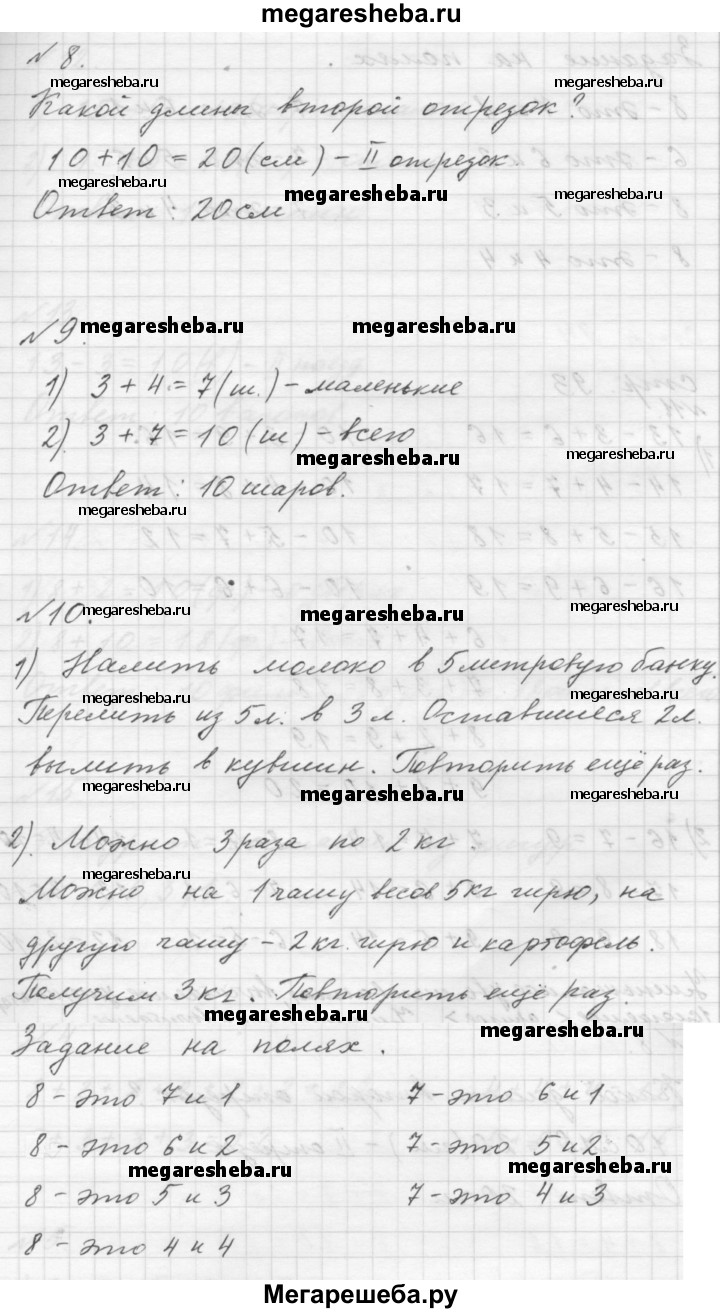 megaresheba.ru
№ 8.
megaresheba.ru
megaresheba.ru
Какой длины второй отрезок?
10 + 10 = 20 (см) – II отрезок
megaresheba.ru
megaresheba.ru
megaresheba.ru
Ответ: 20 см
№ 9.
megaresheba.ru
megaresheba.ru
1) 3 + 4 = 7 (ш.) – маленькие
2) 3 + 7 = 10 (ш) – всего
megaresheba.ru
megaresheba.ru
Ответ: 10 шаров.
megaresheba.ru
№ 10.
megaresheba.ru
megaresheba.ru
megaresheba.ru
1) Налить молоко в 5 литровую банку.
megaresheba.ru
megaresheba.ru
Перелить из 5 л. в 3 л. Оставшиеся 2 л.
вылить в кувшин. Повторить ещё раз.
megaresheba.ru
megaresheba.ru
megaresheba.ru
2). Можно 3 раза по 2 кг.
megaresheba.ru
Можно на 1 чашу весов 5 кг гирю, на
другую чашу – 2 кг. гирю и картофель.
Получим 3 кг. Повторить ещё раз.
megaresheba.ru
megaresheba.ru
Задание на полях.
8 – это 7 и 1 7 – это 6 и 1
8 – это 6 и 2 7 – это 5 и 2
megaresheba.ru
megaresheba.ru
8 – это 5 и 3 7 – это 4 и 3
8 – это 4 и 4
Мегарешеба.ру